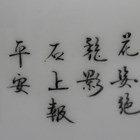 花姿絕
影
石上報
平安